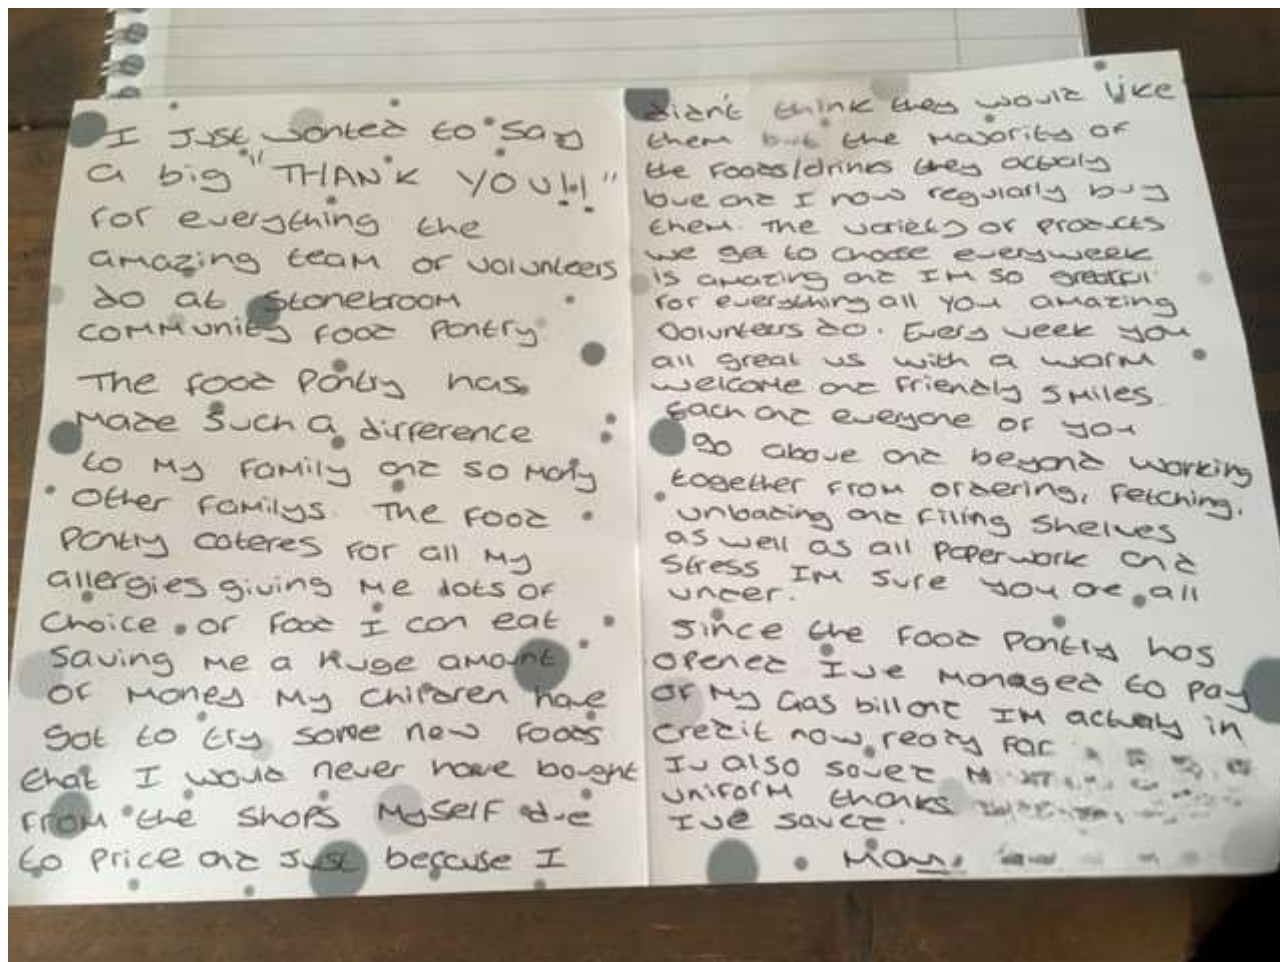 I Just wanted to say
a big "THANK YOU!!"
for everything the
amazing team of volunteers
do at Stonebroom
community food pantry
The food pantry has
made such a difference
to my family and so many
other familys. The food
pantry cateres for all my
allergies giving me lots of
choice of food I can eat
saving me a huge amount
of money My children have
got to try some new foods
that I would never have bought
from the shops myself due
to price and just because I
didn't think they would like
them but the majority of
the foods/drinks they actualy
love and I now regularly buy
them. The variety of products
we get to choose everyweek
is amazing and IM so greatful
for everything all you amazing
volunteers do. Every week you
all great us with a warm
welcome and friendly smiles.
Each and everyone of you
go above and beyond working
together from ordering, fetching,
unloading and filing shelves
as well as all paperwork and
stress IM sure you are all
under.
Since the food pantry has
opened Ive managed to pay
of my Gas bill and IM actualy in
credit now ready for
Iv also saved
uniform thanks
Ive saved.